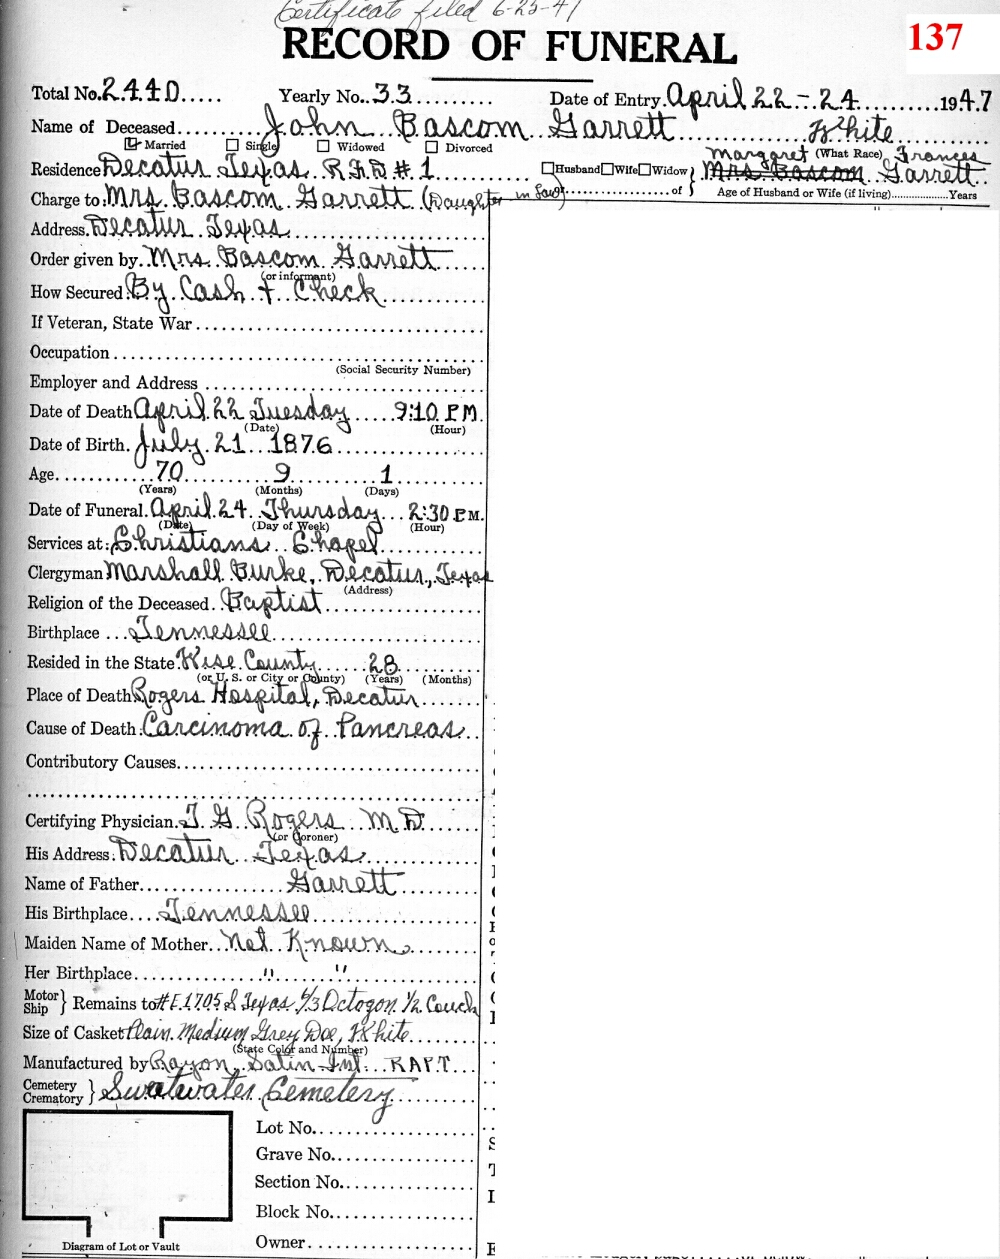 Certificate filed 6-23-47
137
RECORD OF FUNERAL
Total No. 2440..... Yearly No. 33......... Date of Entry April 22-24.......... 1947
Name of Deceased.......... John Bascom Garrett .......... White
☑ Married ☐ Single ☐ Widowed ☐ Divorced (What Race)
Residence Decatur Texas. R.F.D # 1 ☐Husband☐Wife☐Widow of } Margaret Frances Mrs Bascom Garrett
Charge to. Mrs. Bascom Garrett (Daughter in Law) Age of Husband or Wife (if living)............Years
Address. Decatur Texas
Order given by. Mrs. Bascom Garrett
(or informant)
How Secured. By Cash & Check
If Veteran, State War
Occupation
(Social Security Number)
Employer and Address
Date of Death April 22 Tuesday 9:10 P.M.
(Date) (Hour)
Date of Birth. July 21 1876
Age 70 9 1
(Years) (Months) (Days)
Date of Funeral. April 24 Thursday 2:30 P.M.
(Date) (Day of Week) (Hour)
Services at: Christians Chapel
Clergyman Marshall Burke, Decatur, Texas
(Address)
Religion of the Deceased. Baptist
Birthplace Tennessee
Resided in the State. Wise County 28
(or U. S. or City or County) (Years) (Months)
Place of Death Rogers Hospital, Decatur
Cause of Death. Carcinoma of Pancreas
Contributory Causes
Certifying Physician. T G Rogers M D
(or Coroner)
His Address. Decatur Texas
Name of Father Garrett
His Birthplace Tennessee
Maiden Name of Mother Not Known
Her Birthplace " "
Motor Ship } Remains to #E1705 S Texas 6/3 Octogon 1/2 Couch
Size of Casket Plain Medium Grey Doe, White
(State Color and Number)
Manufactured by Rayon, Satin Int. RAPT
Cemetery Crematory } Sweetwater Cemetery
Lot No.
Grave No.
Section No.
Block No.
Owner
Diagram of Lot or Vault